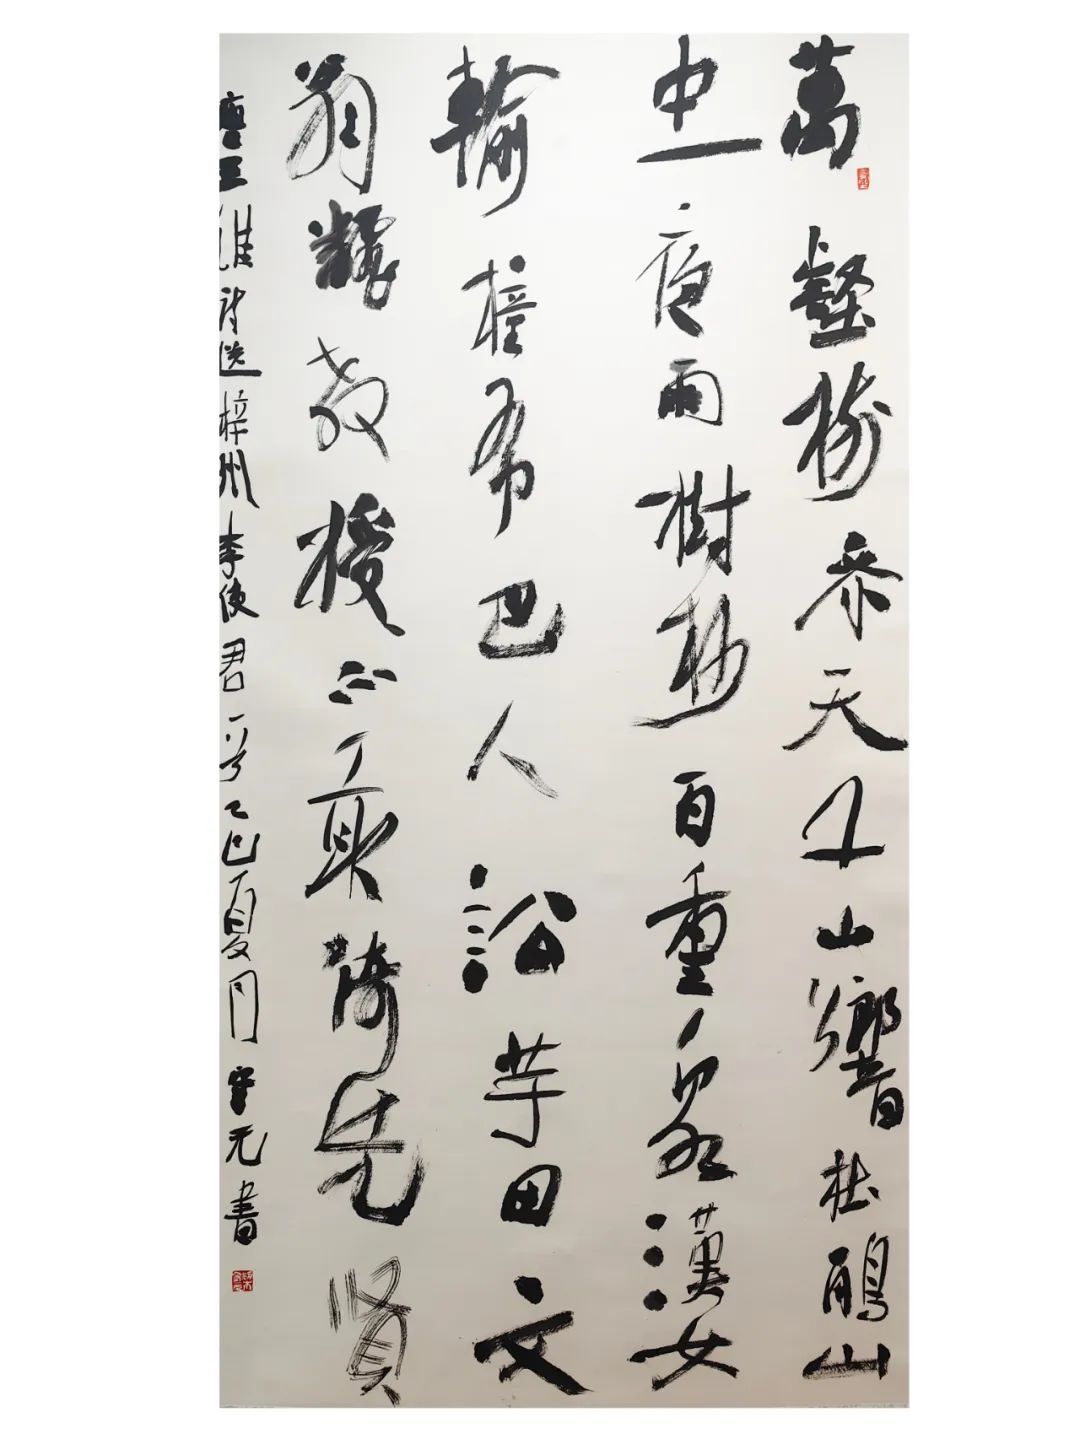 萬壑樹參天千山響杜鵑山
中一夜雨樹杪百重泉漢女
輸橦布巴人訟芋田文
翁翻教授不敢倚先賢
唐王維詩送梓州李使君一首乙巳夏月元書